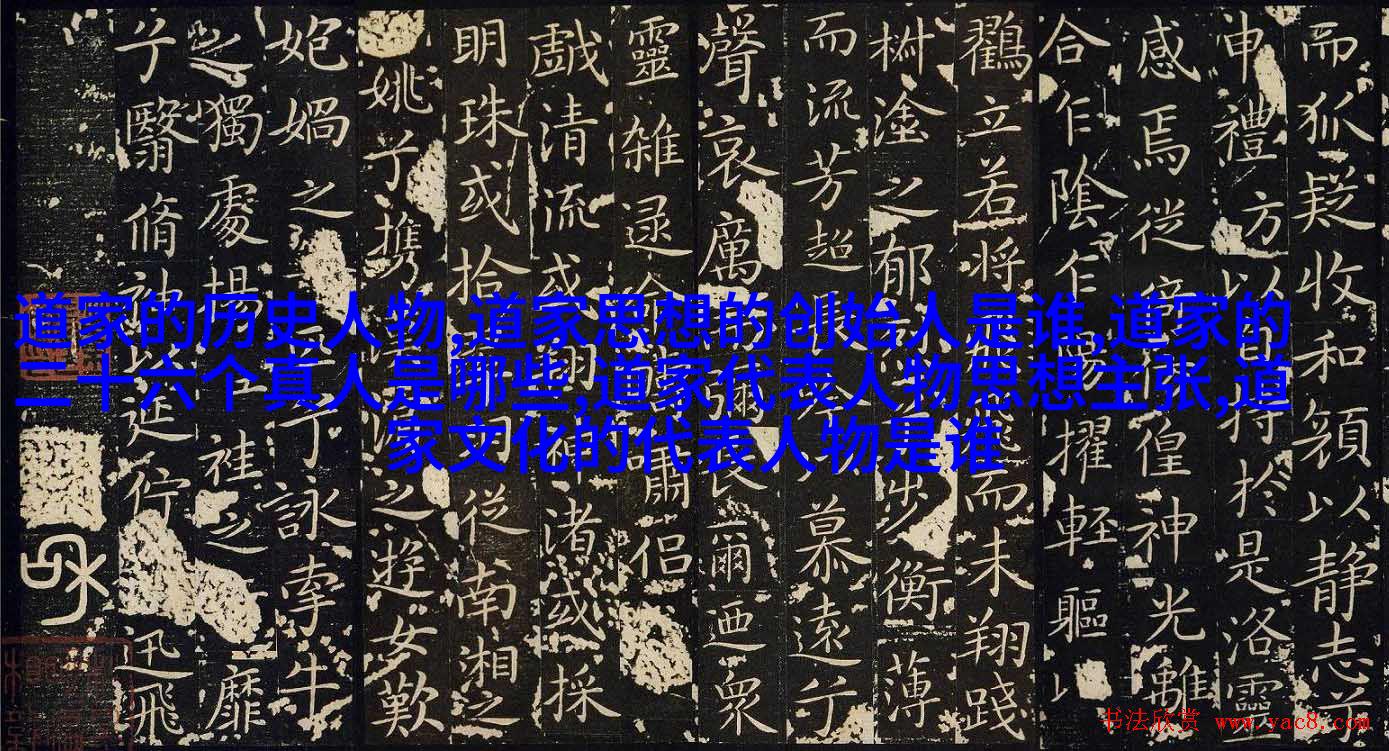 道家的历史人物,道家思想的创始人是谁,道家的
二十六个真人是哪些,道家代表人物思想主张,道
家文化的代表人物是谁
而狐疑收和顔以静志兮
申禮方以自持於是洛靈
感焉徙偟神光離
合乍陰乍陽擢軽軀以
鸛立若將飛而未翔踐
椒塗之郁步衡薄
而流芳超慕遠兮
聲哀厲彌長爾迺衆
靈雜遝命嘯侣
戯清流或翔神渚或採
明珠或拾羽從南湘之
姚兮攜濱之遊女歎
妃媧之兮詠牽牛
之獨處揚袿之靡
兮翳脩袖以延佇迅飛
书法欣赏 www.yac8.com